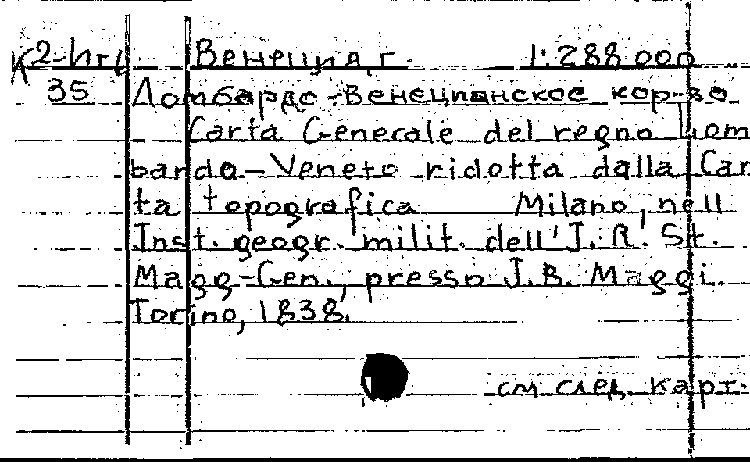 К 2-Ит/ Венеция, г. 1:288 000
35 Ломбардо-Венецианское кор-во
Carta Generale del regno Lom
bardo-Veneto ridotta dalla Car
ta topografica Milano, nell
Inst. geogr. milit. dell' J. R. St.
Magg-Gen., presso J. B. Maggi.
Torino, 1838.
см. след. карт.